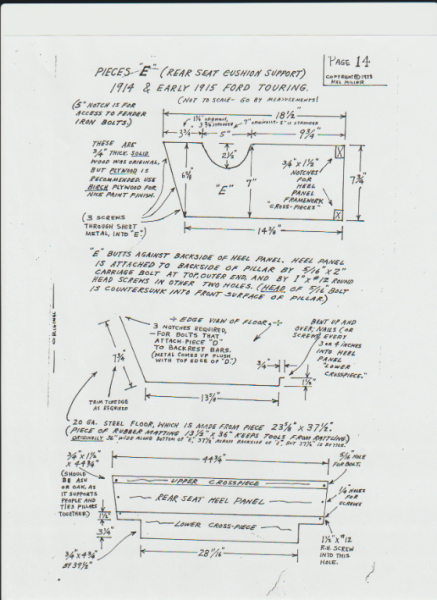 PAGE 14
COPYRIGHT © 1973
PIECES "E" (REAR SEAT CUSHION SUPPORT)
1914 & EARLY 1915 FORD TOURING.
(NOT TO SCALE - GO BY MEASUREMENTS!
(5" NOTCH IS FOR
ACCESS TO FENDER
IRON BOLTS)
18 1/2"
3 3/4"
5"
9 3/4"
THESE ARE
3/4" THICK. SOLID
WOOD WAS ORIGINAL,
BUT PLYWOOD IS
RECOMMENDED. USE
BIRCH PLYWOOD FOR
NICE PAINT FINISH.
2 1/2"
"E"
7"
3/4" X 1 1/2"
NOTCHES
FOR
HEEL
PANEL
FRAMEWORK
"CROSS-PIECES"
7 3/4"
(3 SCREWS
THROUGH SHEET
METAL, INTO "E")
14 3/8"
"E" BUTTS AGAINST BACKSIDE OF HEEL PANEL. HEEL PANEL
IS ATTACHED TO BACKSIDE OF PILLAR BY 5/16" X 2"
CARRIAGE BOLT AT TOP, OUTER END, AND BY 1" X #12 ROUND
HEAD SCREWS IN OTHER TWO HOLES. (HEAD OF 5/16 BOLT
IS COUNTERSUNK INTO FRONT SURFACE OF PILLAR)
EDGE VIEW OF FLOOR
3 NOTCHES REQUIRED,
FOR BOLTS THAT
ATTACH PIECE "D"
TO BACKREST BARS.
(METAL COMES UP FLUSH
WITH TOP EDGE OF "D")
BENT UP AND
OVER; NAILS (OR
SCREWS) EVERY
3 OR 4 INCHES
INTO HEEL
PANEL
"LOWER
CROSSPIECE."
7 3/4"
3/4"
TRIM TO EDGE
AS REQUIRED
13 5/8"
20 GA. STEEL FLOOR, WHICH IS MADE FROM PIECE 23 5/8" X 37 1/2".
(PIECE OF RUBBER MATTING 13 1/2" X 36" KEEPS TOOLS FROM RATTLING)
3/4" X 1 1/2"
X 44 3/4"
(SHOULD
BE ASH
OR OAK, AS
IT SUPPORTS
PEOPLE AND
TIES PILLARS
TOGETHER)
44 3/4"
5/16 HOLE
FOR BOLT.
UPPER CROSSPIECE
REAR SEAT HEEL PANEL
1/4" HOLES
FOR
SCREWS
1 1/2"
LOWER CROSS-PIECE
3 1/4"
3/4" X 4 3/4"
BY 39 1/2"
1 1/2" X #12
F.H. SCREW
INTO THIS
HOLE.
ORIGINAL